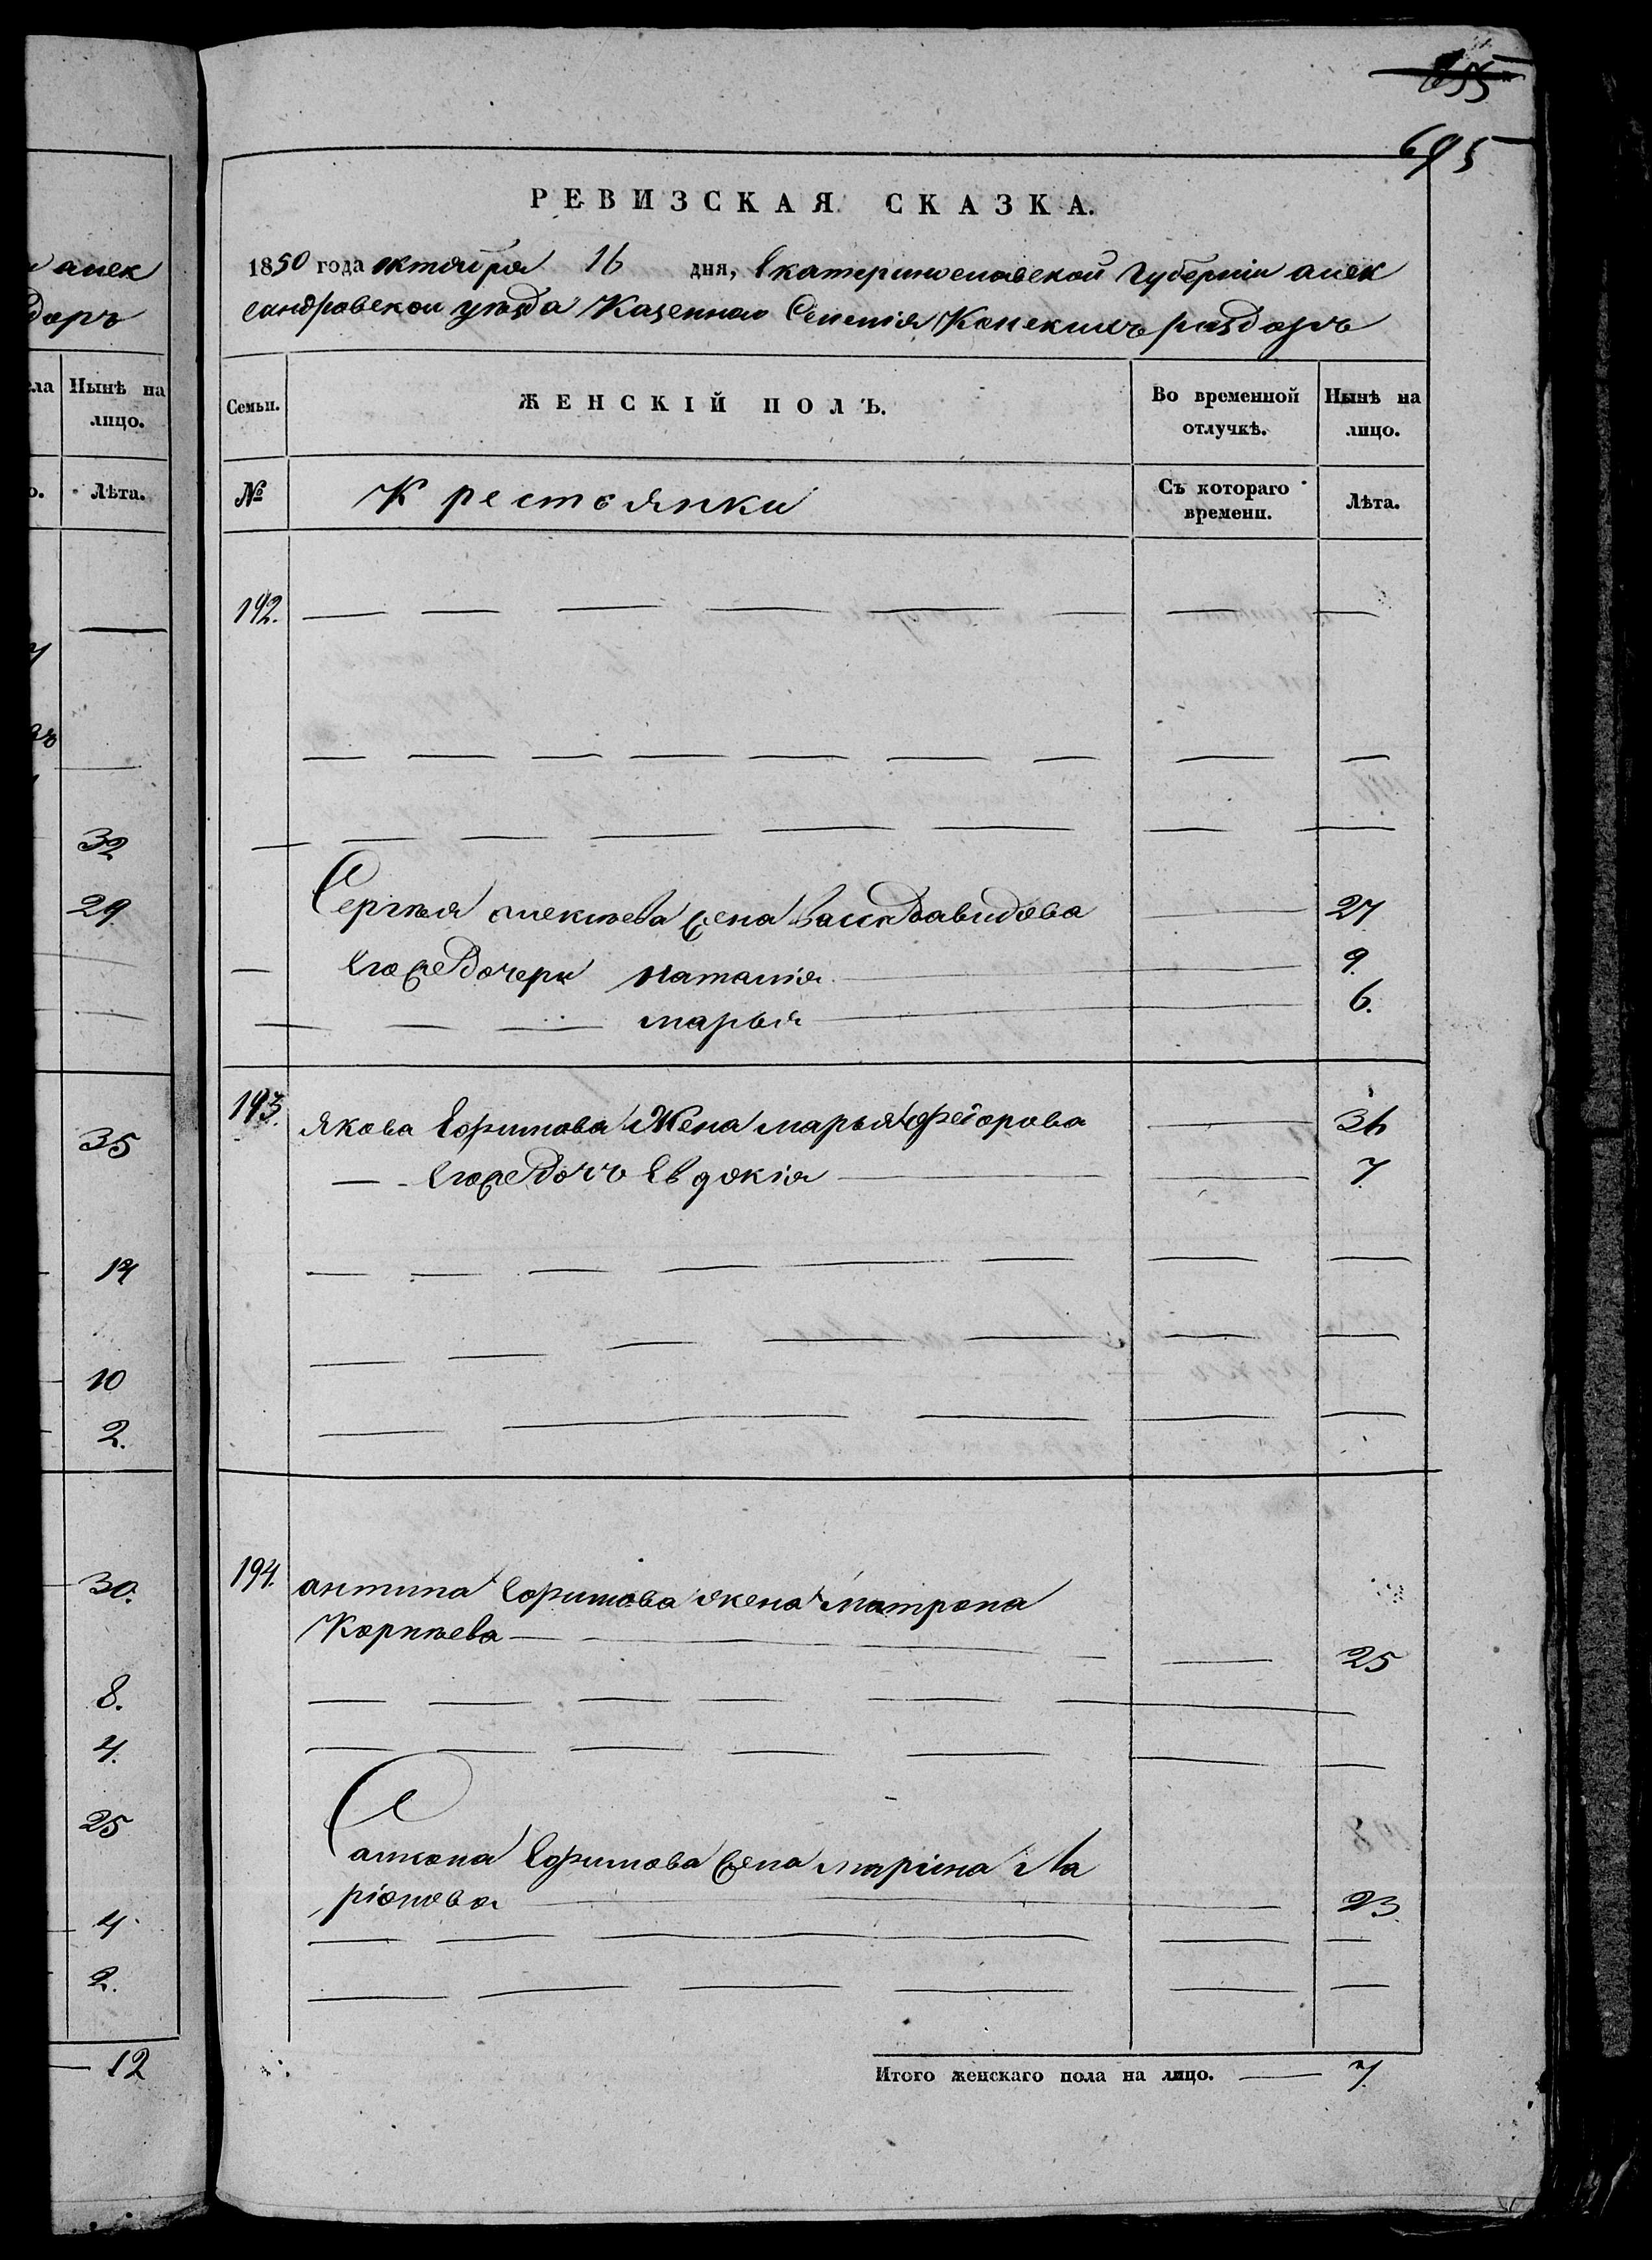 695
РЕВИЗСКАЯ СКАЗКА.
1850 года октября 16 дня, Екатеринославской Губерніи алек
сандровскои уезда Казеннаго Селенія Конекихъ раздоръ
Семьи.
ЖЕНСКІЙ ПОЛЪ.
Во временной отлучкѣ.
Нынѣ на лицо.
№
Крестьянки
Съ котораго времени.
Лѣта.
192.
Сергѣя алексѣева жена Васса Давидова 27
Его же Дочери наталія 9.
марья 6.
193. Якова Ефимова Жена марья Федорова 36
Его же Дочь Евдокія 7
194. антипа Ефимова жена Матрона
Корнѣева 25
Самсона Ефимова жена маріна Ла
ріонова 23
Итого женскаго пола на лицо. 7.
алек
доръ
ла
Нынѣ на лицо.
Лѣта.
32
29
35
14
10
2.
30.
8.
4.
25
4
2.
12